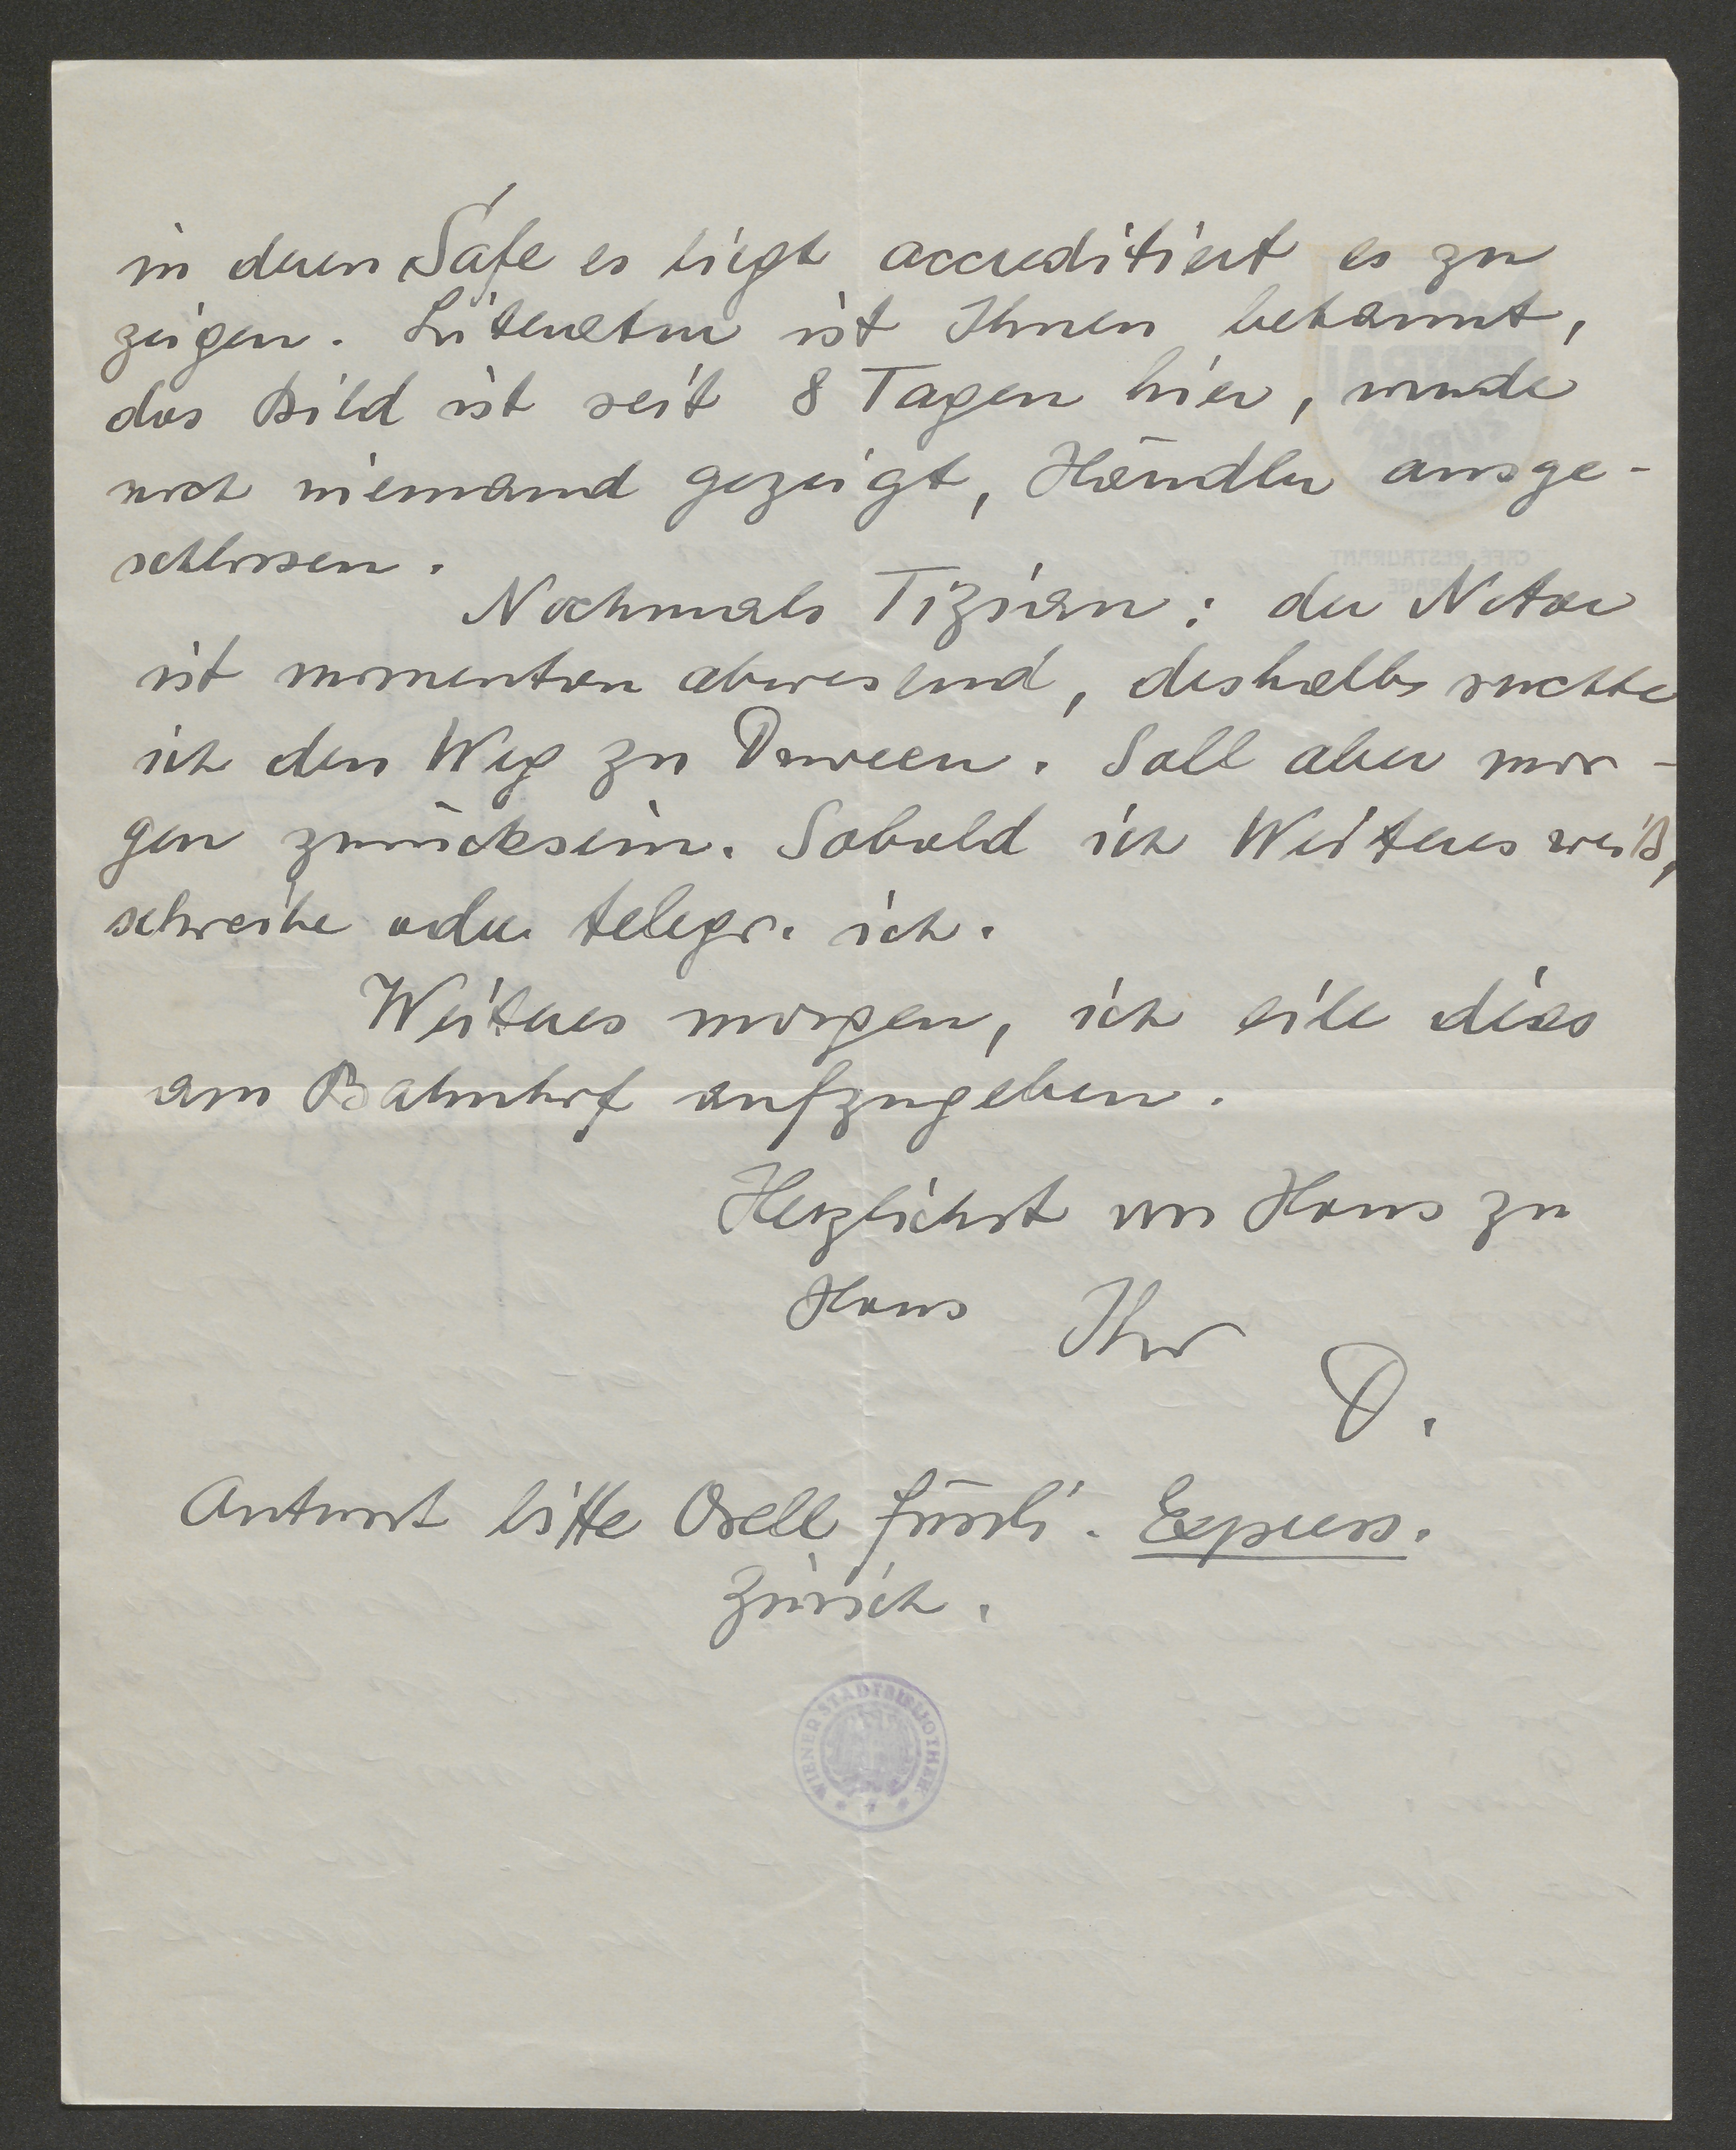 in deren Safe es liegt accreditiert es zu
zeigen. Literatur ist Ihnen bekannt,
das Bild ist seit 8 Tagen hier, wurde
noch niemand gezeigt, Händler ausge-
schlossen.
Nochmals Tizian: der Notar
ist momentan abwesend, deshalb suchte
ich den Weg zu Duveen. Soll aber mor-
gen zurücksein. Sobald ich Weiteres weiß,
schreibe oder telegr. ich.
Weiteres morgen, ich eile dies
am Bahnhof aufzugeben.
Herzlichst von Haus zu
Haus Ihr
D.
Antwort bitte Orell Füssli. Express.
Zürich.
WIENER STADTBIBLIOTHEK